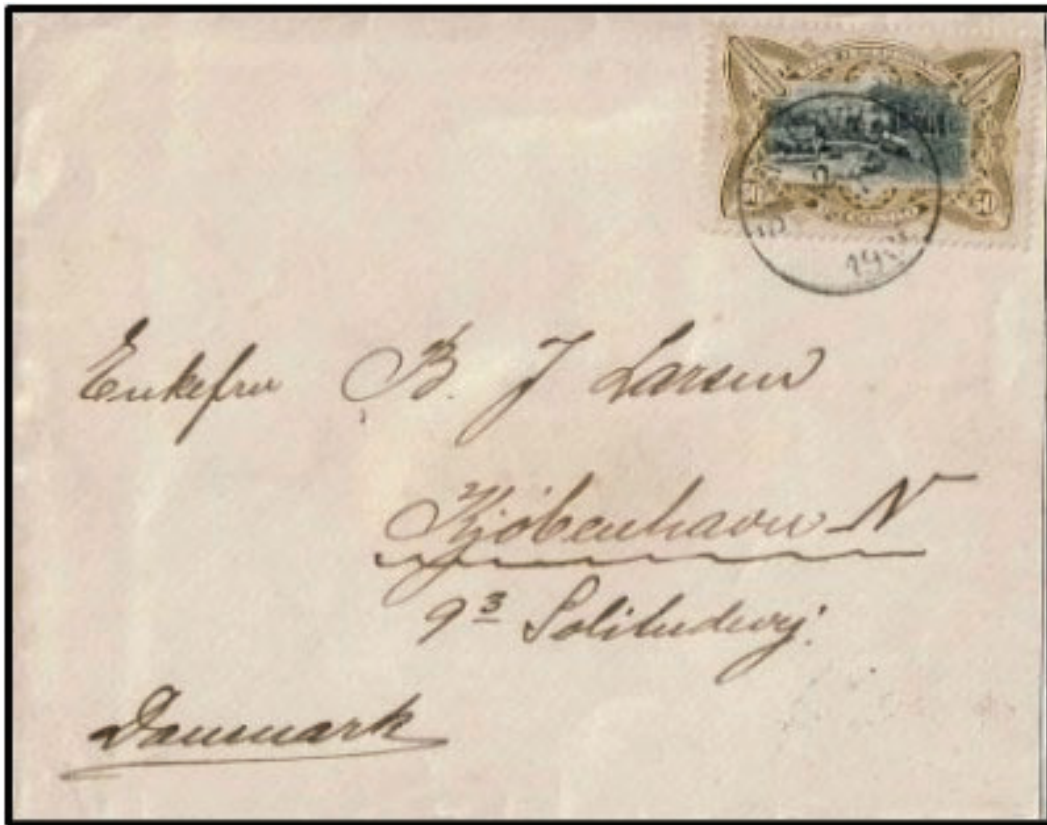 CONGO
Enkefru B. J Larsen
Kjöbenhavn N
9³ Solitudevej.
Danmark